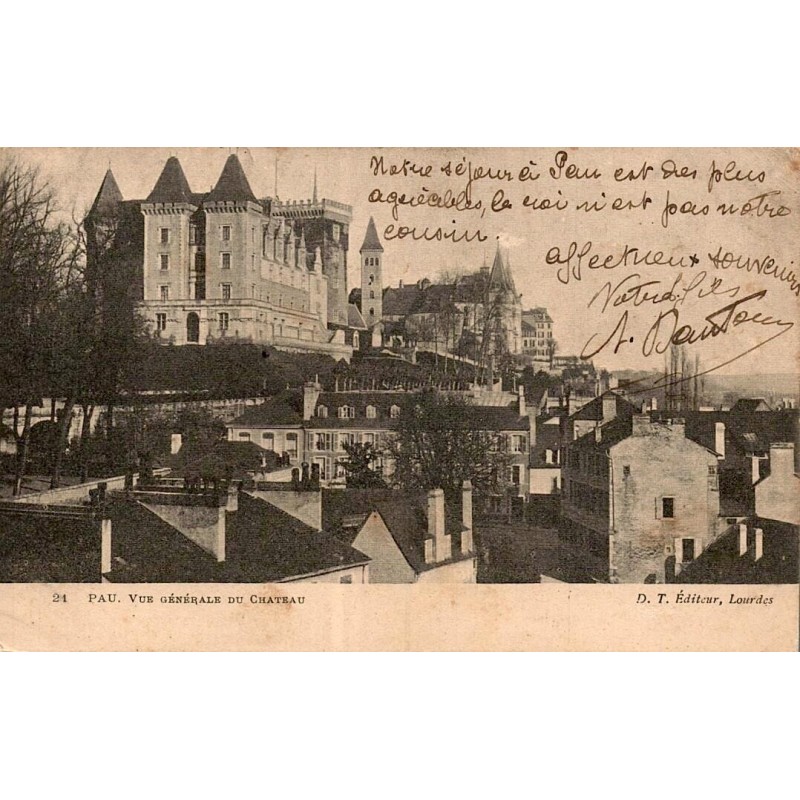 Notre séjour à Pau est des plus
agréables, le roi n'est pas notre
cousin.
affectueux souvenirs
Votre fils
A.
24 PAU. VUE GÉNÉRALE DU CHATEAU
D. T. Éditeur, Lourdes